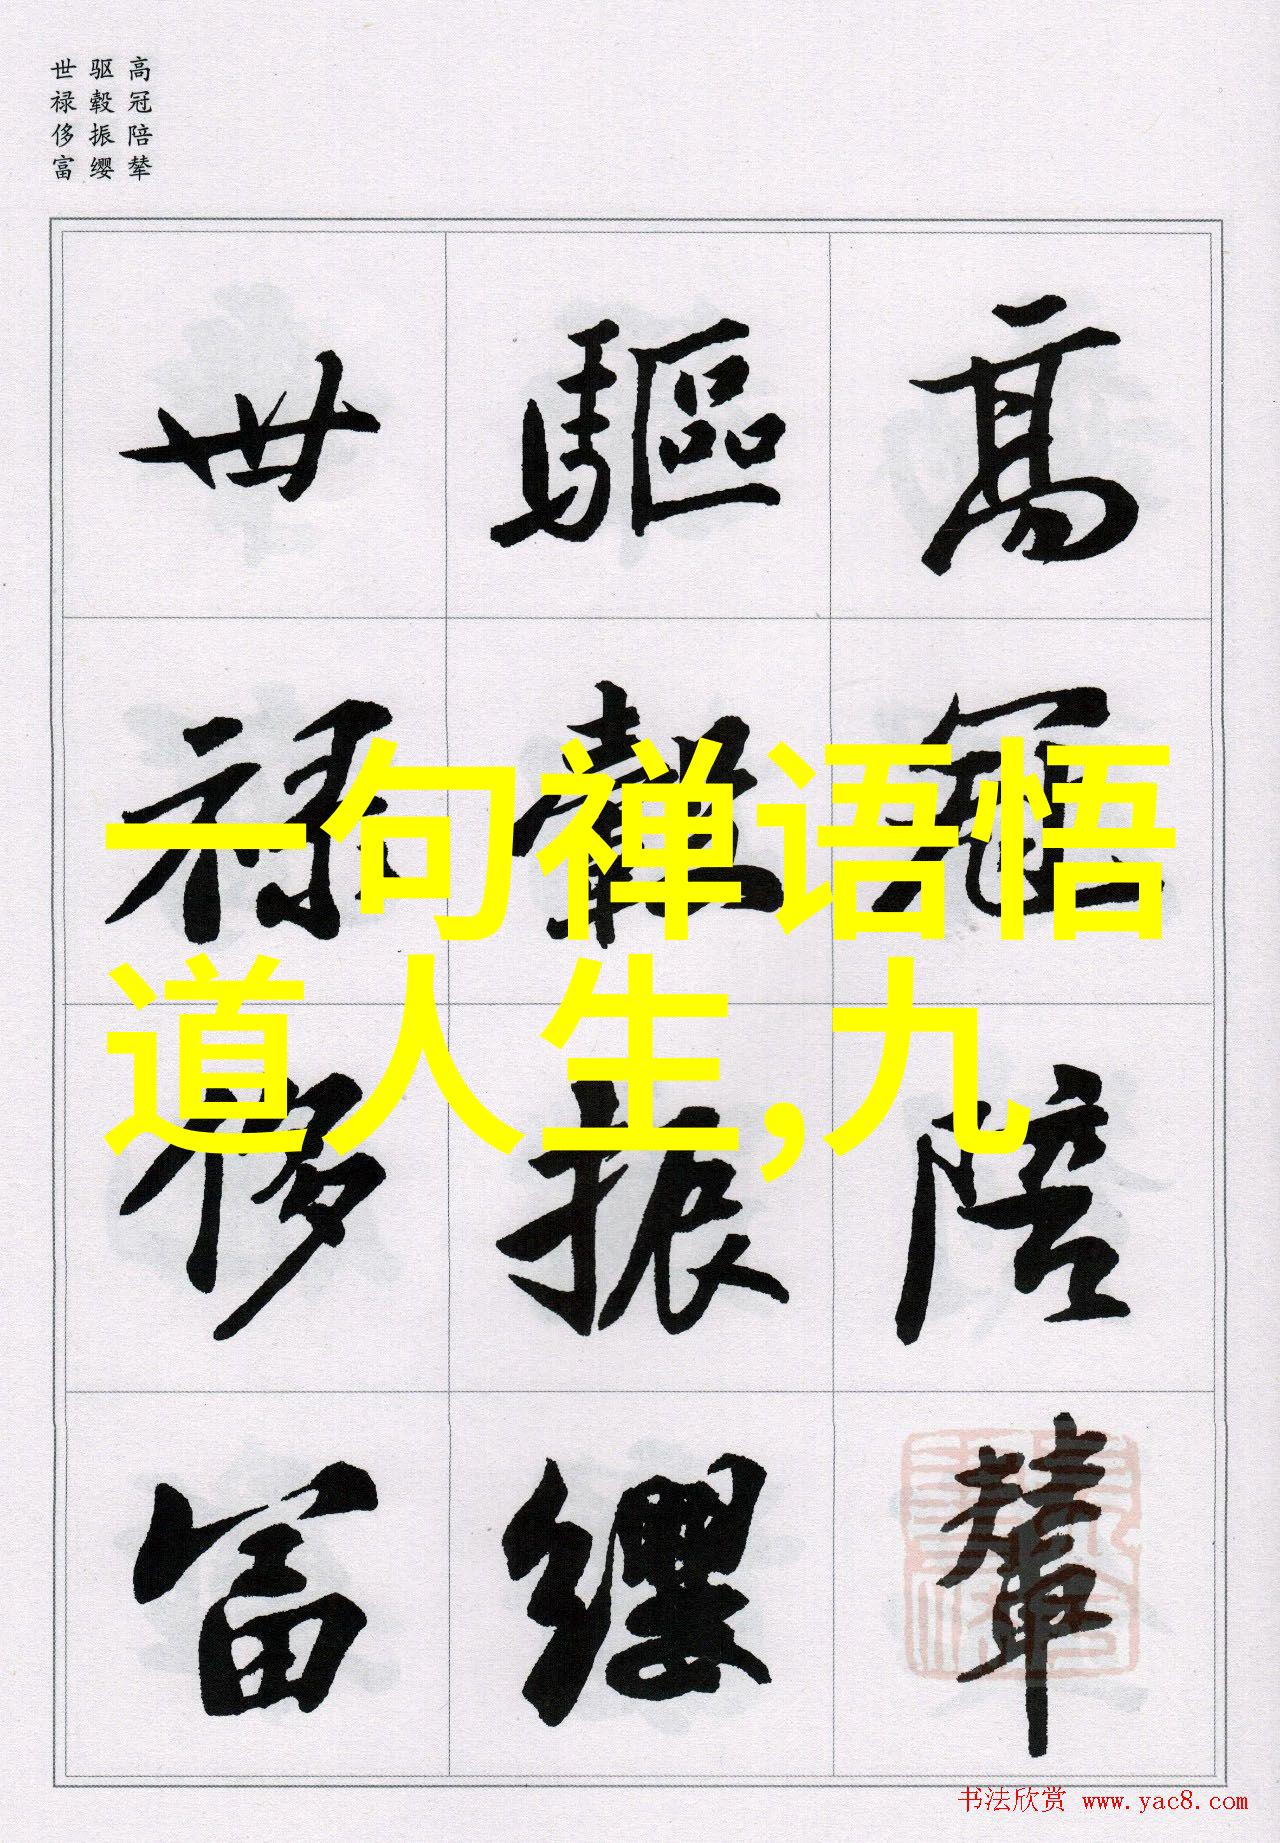 高冠陪辇
驱毂振缨
世禄侈富
高冠陪輦
驅轂振纓
世禄侈富
一句禅语悟
道人生,九
书法欣赏 www.yac8.com